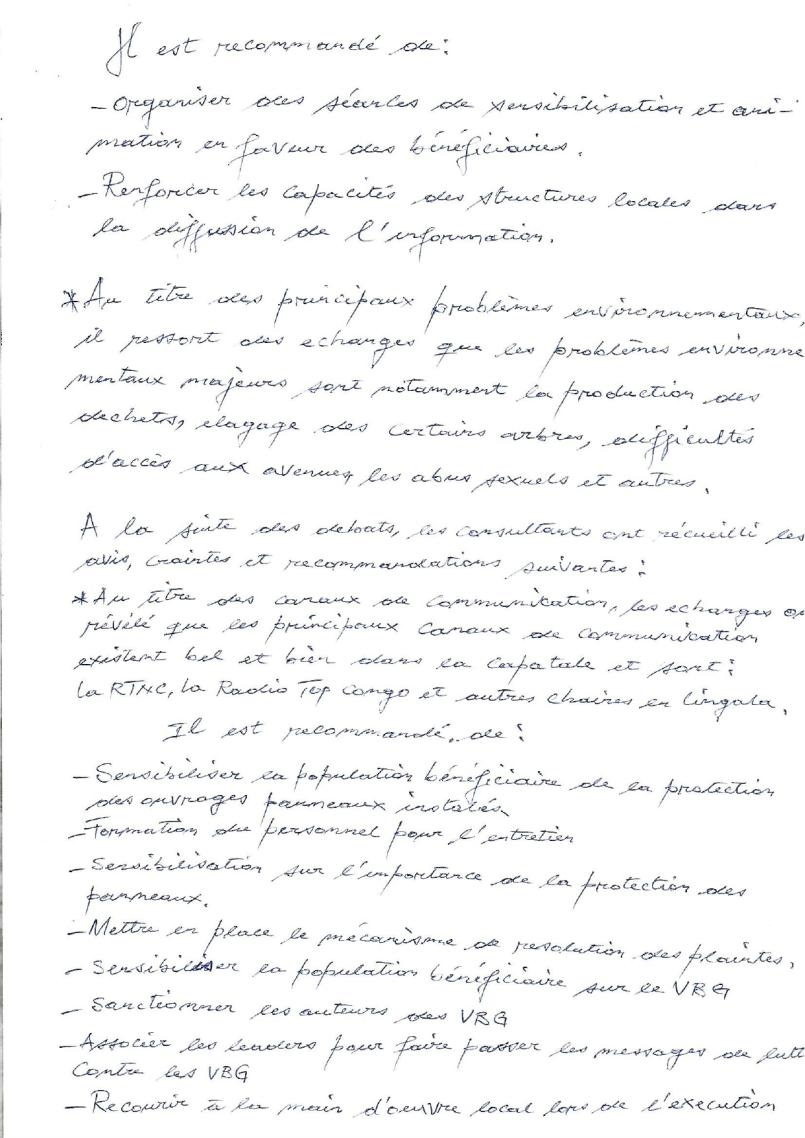 Il est recommandé de:
- Organiser des séances de sensibilisation et ani-
mation en faveur des bénéficiaires.
- Renforcer les capacités des structures locales dans
la diffussion de l'information.
* Au titre des principaux problèmes environnementaux,
il ressort des echanges que les problèmes environne
mentaux majeurs sont notamment la production des
dechets, elagage des certains arbres, difficultés
d'accès aux avenues, les abus sexuels et autres.
A la suite des debats, les consultants ont récueilli les
avis, craintes et recommandations suivantes:
* Au titre des canaux de communication, les echanges on
révélé que les principaux canaux de communication
existent bel et bien dans la capatale et sont:
la RTNC, la Radio Top Congo et autres chaines en lingala.
Il est recommandé, de:
- Sensibiliser la population bénéficiaire de la protection
des ouvrages panneaux installés
- Formation du personnel pour l'entretien
- Sensibilisation sur l'importance de la protection des
panneaux.
- Mettre en place le mécanisme de resolution des plaintes,
- Sensibiliser la population bénéficiaire sur le VBG
- Sanctionner les auteurs des VBG
- Associer les leaders pour faire passer les messages de lutt
Contre les VBG
- Recourir à la main d'oeuvre local lors de l'execution